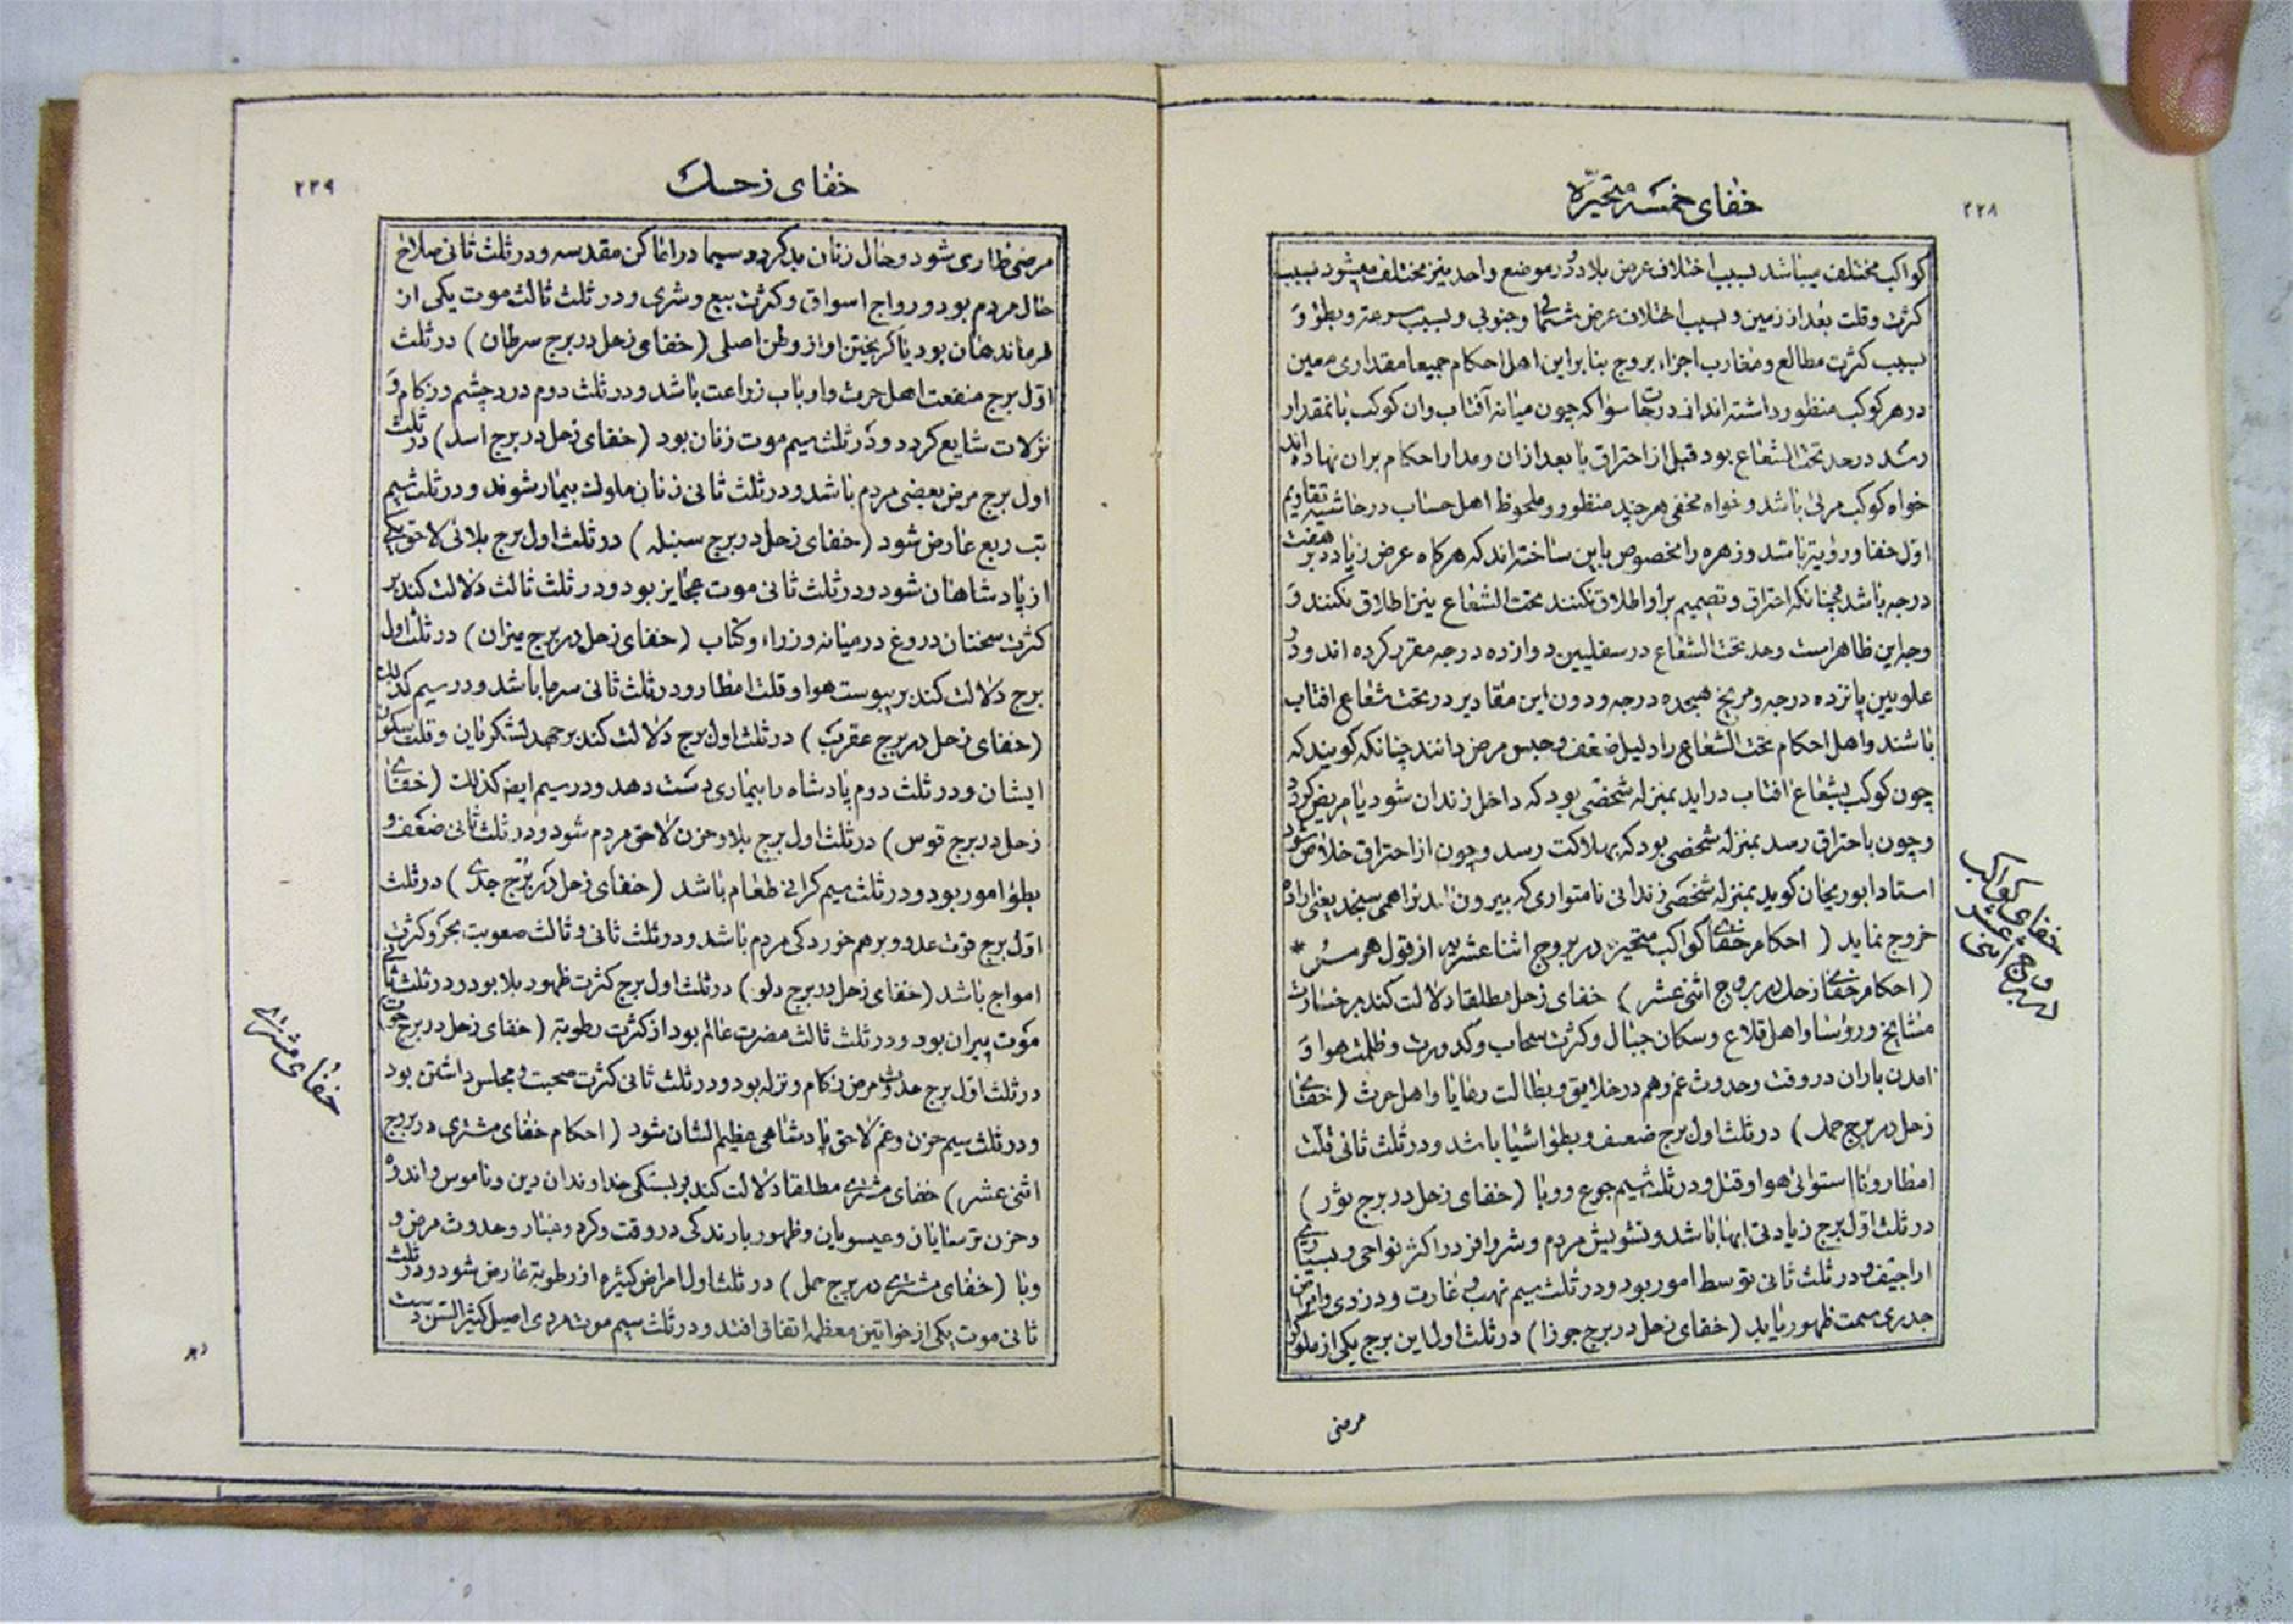 ۲۳۸
خفای خمسه متحیّره
کواکب مختلف میباشد بسبب اختلاف عرض بلاد و در موضع واحد نیز مختلف میشود بسبب
کثرت و قلت بعد از زمین و بسبب اختلاف عرض شمالی و جنوبی و بسبب سرعت و بطؤ و
بسبب کثرت مطالع و مغارب اجزاء بروج بنابراین اهل احکام جمیعا مقداری معین
در هر کوکب منظور داشته‌اند از درجات سوا که چون میانه آفتاب و ان کوکب بانمقدار
رسد در حد تحت الشعاع بود قبل از احتراق یا بعد از ان و مدار احکام بران نهاده‌اند
خواه کوکب مرئی باشد و خواه مخفی هر چند منظور و ملحوظ اهل حساب در حاشیه تقاویم
اوّل خفا و رؤیة باشد و زهره را مخصوص باین ساخته‌اند که هرکاه عرض زیاد بر هفت
درجه باشد چنانکه احتراق و تصمیم بر او اطلاق نکنند تحت الشعاع نیز اطلاق نکنند و
وجه این ظاهر است و حد تحت الشعاع در سفلیین دوازده درجه مقرر کرده‌اند و در
علویین پانزده درجه و مریخ هیجده درجه و دون این مقادیر در تحت شعاع افتاب
باشند و اهل احکام تحت الشعاع را دلیل ضعف و حبس مرض دانند چنانکه کویند که
چون کوکب بشعاع افتاب دراید بمنزله شخصی بود که داخل زندان شود یا مریض کردد
و چون باحتراق رسد بمنزله شخصی بود که بهلاکت رسد و چون از احتراق خلاص شود
استاد ابوریحان کوید بمنزله شخصی زندانی نامتواری که بیرون امدنرا همی سیجد یعنی اراده
خروج نماید ( احکام خفای کواکب متحیره در بروج اثنا عشریه از قول هرمس *
(احکام خفای زحل در بروج اثنی عشر) خفای زحل مطلقا دلالت کند بر خسارت
مشایخ و رؤسا و اهل قلاع و سکان جبال و کثرت سحاب و کدورت و ظلمت هوا و
امدن باران در وقت و حدوث غم و هم در خلایق و بطالت رعایا و اهل حرث (خفای
زحل در برج حمل) در ثلث اول برج ضعف و بطؤ اشیا باشد و در ثلث ثانی قلت
امطار و نااستوائی هوا و قتل و در ثلث سیم جوع و وبا (خفای زحل در برج ثور)
در ثلث اوّل برج زیادتی ابها باشد و تشویش مردم و شر وافر در اکثر نواحی و بسیاری
اراجیف و در ثلث ثانی توسط امور بود و در ثلث سیم نهب و غارت و دزدی و امراض
جدری سمت ظهور یابد (خفای زحل در برج جوزا) در ثلث اول این برج یکی از ملوک را
مرضی
خفای کواکب
در بروج اثنی
۲۳۹
خفای زحل
مرضی طاری شود و حال زنان بد کردد سیما در اماکن مقدسه و در ثلث ثانی صلاح
حال مردم بود و رواج اسواق و کثرت بیع و شری و در ثلث ثالث موت یکی از
فرماندهان بود یا کریختن او از وطن اصلی (خفای زحل در برج سرطان) در ثلث
اوّل برج منفعت اهل حرث و ارباب زراعت باشد و در ثلث دوم درد چشم و زکام و
نزلات شایع کردد و در ثلث سیم موت زنان بود (خفای زحل در برج اسد) در ثلث
اول برج مرض بعضی مردم باشد و در ثلث ثانی زنان ملوک بیمار شوند و در ثلث سیم
تب ربع عارض شود (خفای زحل در برج سنبله) در ثلث اول برج بلائی لاحق یکی
از پادشاهان شود و در ثلث ثانی موت عجایز بود و در ثلث ثالث دلالت کند بر
کثرت سخنان دروغ در میانه وزراء و کتاب (خفای زحل در برج میزان) در ثلث اول
برج دلالت کند بر یبوست هوا و قلت امطار و در ثلث ثانی سرما باشد و در سیم کذلک
(خفای زحل در برج عقرب) در ثلث اول برج دلالت کند بر جهد لشکریان و قلت سکون
ایشان و در ثلث دوم پادشاه را بیماری دست دهد و در سیم ایضا کذلک (خفای
زحل در برج قوس) در ثلث اول برج بلا و حزن لاحق مردم شود و در ثلث ثانی ضعف و
بطؤ امور بود و در ثلث سیم کرانی طعام باشد (خفای زحل در برج جدی) در ثلث
اوّل برج قوت عدو و برهم خوردکی مردم باشد و در ثلث ثانی و ثالث صعوبت بحر و کثرت
امواج باشد (خفای زحل در برج دلو) در ثلث اول برج کثرت ظهور بلا بود و در ثلث ثانی
موت پیران بود و در ثلث ثالث مضرت عالم بود از کثرت رطوبة (خفای زحل در برج حوت)
در ثلث اوّل برج حدوث مرض زکام و نزله بود و در ثلث ثانی کثرت صحبت و مجلس داشتن بود
و در ثلث سیم حزن و غم لاحق پادشاهی عظیم الشان شود (احکام خفای مشتری در بروج
اثنی عشر) خفای مشتری مطلقا دلالت کند بر بستکی خداوندان دین و ناموس و اندوه
و حزن ترسایان و عیسویان و ظهور بارندکی در وقت و کرد و غبار و حدوث مرض و
وبا (خفای مشتری در برج حمل) در ثلث اول امراض کثیره از رطوبة عارض شود و در ثلث
ثانی موت یکی از خواتین معظمه اتفاق افتد و در ثلث سیم موت مردی اصیل کثیر السن دست
خفای مشتری
دهد